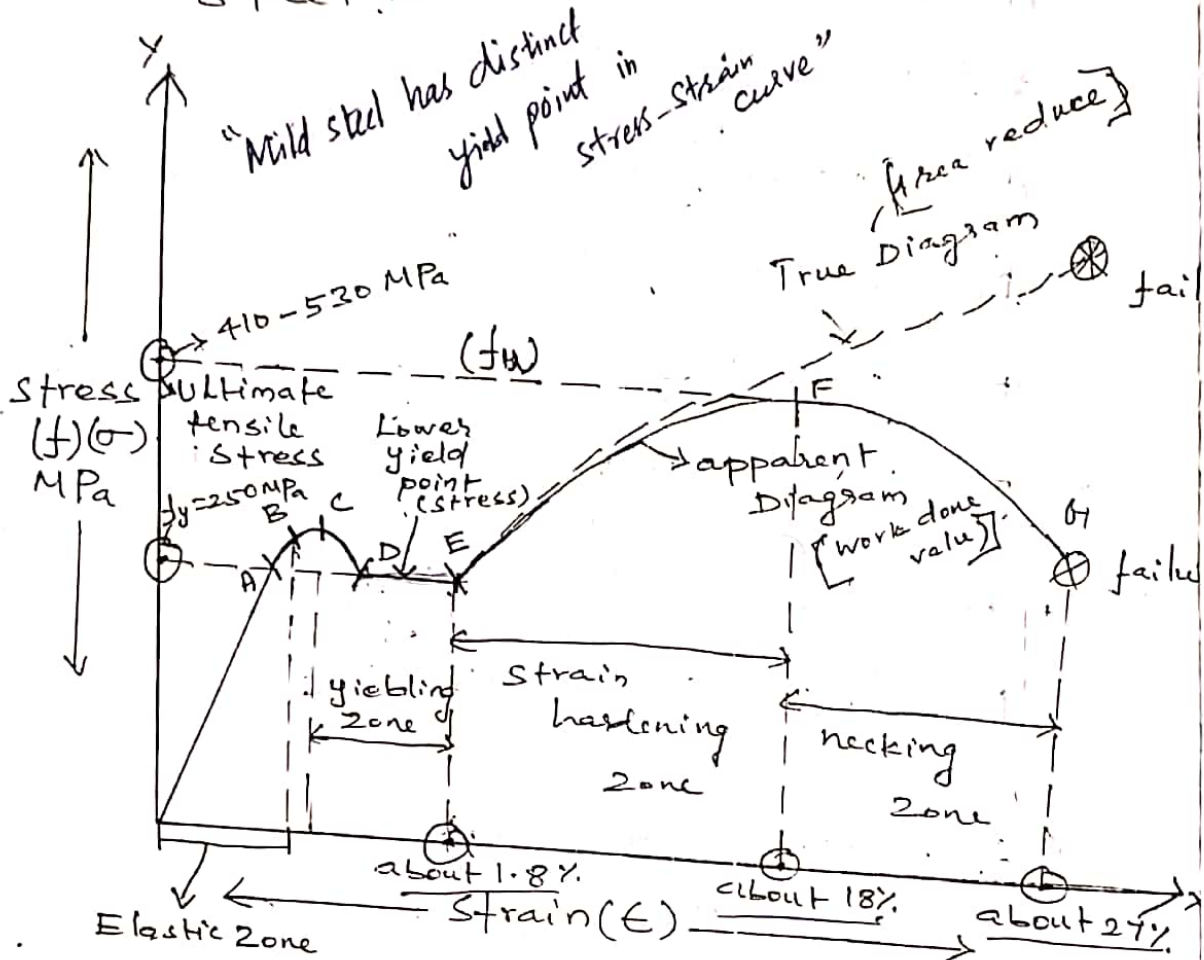 Y
"Mild steel has distinct
yield point in
stress-strain
curve"
[Area reduce]
True Diagram
fail
410-530 MPa
F
Stress
(f)(σ)
MPa
Ultimate
tensile
stress
Lower
yield
point
(stress)
apparent
Diagram
[work done
value]
fy=250MPa
A
B
C
D
E
G
failu
yielding
zone
strain
hardening
zone
necking
zone
about 1.8%
about 18%
Strain (ϵ)
Elastic zone